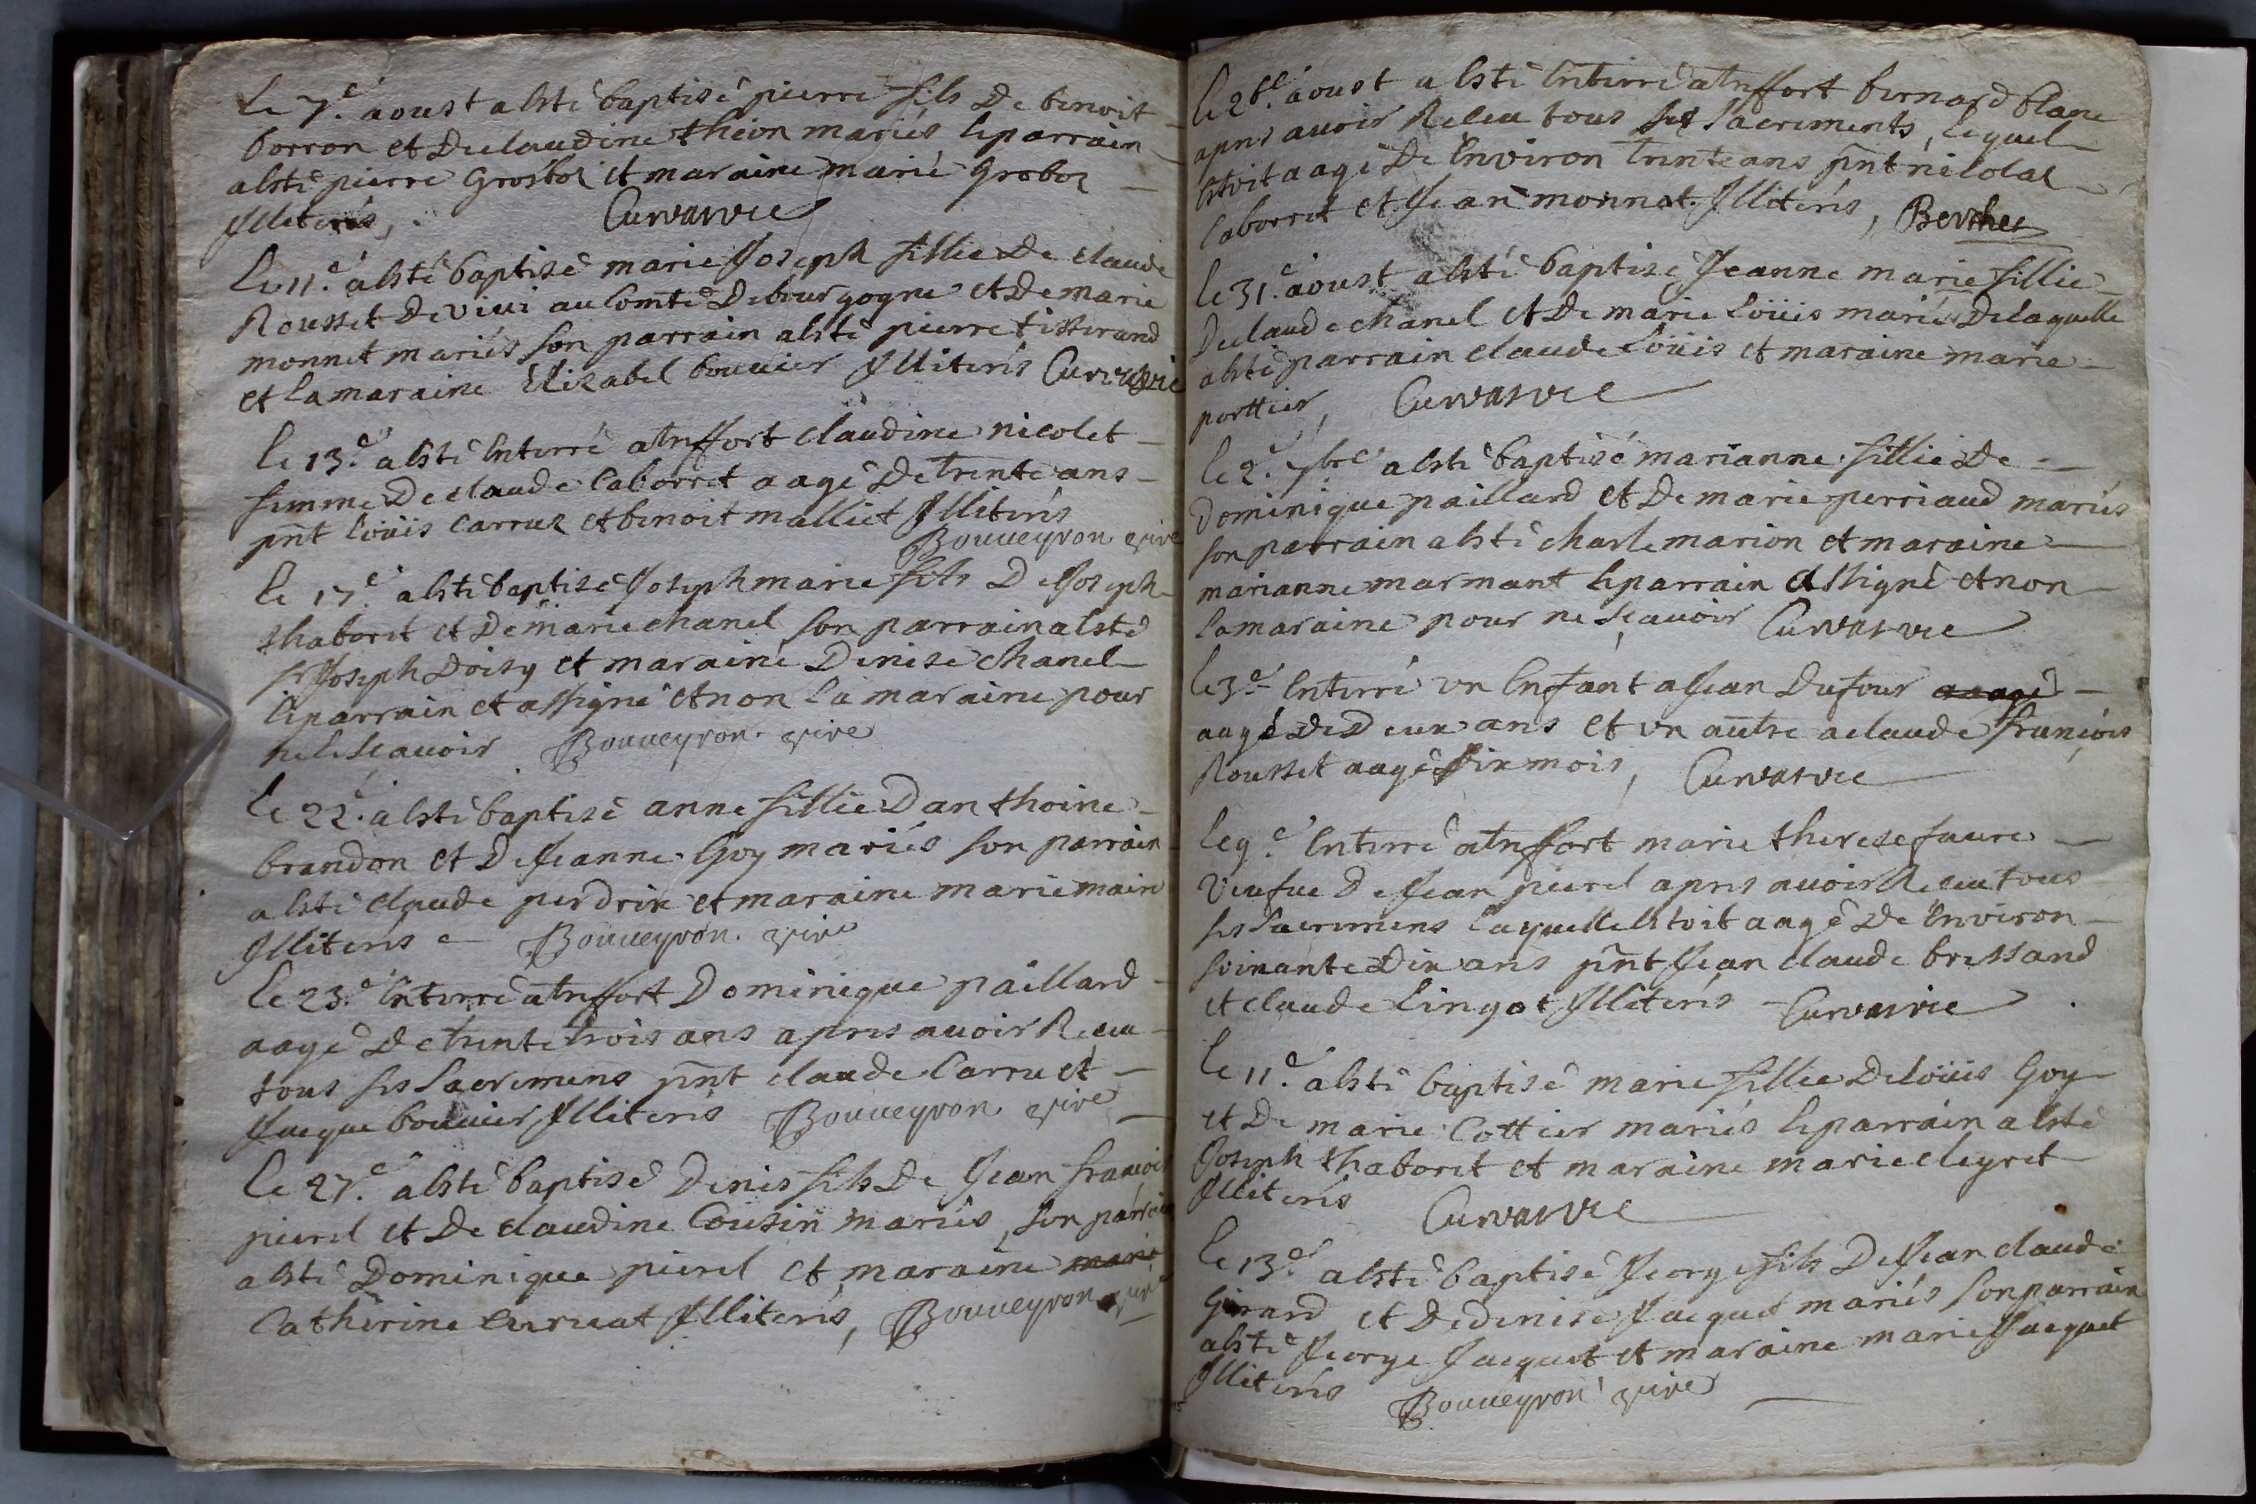 Le 7.e aoust a esté baptisé pierre fils de benoit
borron et de claudine théon mariés le parrain
a esté pierre Grosboz et maraine marie Groboz
Illiterés, Curvarvie
Le 11.e a esté baptisé marie Joseph fillie de claude
Rousset de viui au comté de bourgogne et de marie
monnet mariés son parrain a esté pierre tisserand
et la maraine Elizabel bouuier Illiterés Curvarvie
Le 13.e a esté Enterré a treffort claudine nicolet
femme de claude laborret aagé de trente ans
pnt Loüis Carruz et benoit malliet Illiterés
Bouueyron vire
Le 17.e a esté baptisé Joseph marie fils de Joseph
thaboret et de marie chanel son parrain a esté
sr Joseph doisy et maraine denise chanel
le parrain et assigné et non la maraine pour
ne le scauoir Bouueyron vire
Le 22.e a esté baptisé anne fillie d'anthoine
brandon et de Jeanne Goy mariés son parrain
a esté claude perdrix et maraine marie main
Illiterés Bouueyron vire
Le 23.e Enterré a treffort Dominique paillard
aagé de trente trois ans apres auoir Receu
tous ses sacremens pnt claude Carru et
Jacque bouuier Illiterés Bouueyron vire
Le 27.e a esté baptisé Denis fils de Jean francois
pierel et de claudine Cousin mariés, son parrain
a esté Dominique pierel et maraine marie
Catherine curuat Illiterés, Bouueyron vire
Le 26.e aoust a esté Enterré a treffort bernard blanc
apres auoir Receu tous ses sacrements, lequel
estoit aagé de Environ trente ans pnt nicolas
Laborret et Jean monnet Illiterés, Berthet
Le 31.e aoust a esté baptisé Jeanne marie fillie
de claude chanel et de marie loüis mariés de laquelle
a esté parrain claude loüis et maraine marie
porttier, Curvarvie
Le 2.e 7bre a esté baptisé marianne fillie de
Dominique paillard et de marie perriaud mariés
son parrain a esté charle marion et maraine
marianne marmant le parrain a signé et non
la maraine pour ne scauoir Curvarvie
Le 3.e Enterré un Enfant a Jean Dufour aaagé
aagé de Deux ans et un autre a claude francois
Rousset aagé Six mois, Curvarvie
Le 9.e Enterré a treffort marie therese faure
Veufue de Jean pierel apres auoir Receu tous
ses sacremens laquelle estoit aagé de Environ
soixante dix ans pnt Jean claude bressand
et claude Lingot Illiterés Curvarvie
Le 11.e a esté baptisé marie fillie de loüis Goy
et de marie Cottier mariés le parrain a esté
Joseph thaboret et maraine marie cleyret
Illiterés Curvarvie
Le 13.e a esté baptisé Jeorge fils de Jean claude
Girard et de denise Jacquet mariés son parrain
a esté Jeorge Jacquet et maraine marie Jacquet
Illiterés Bouueyron vire